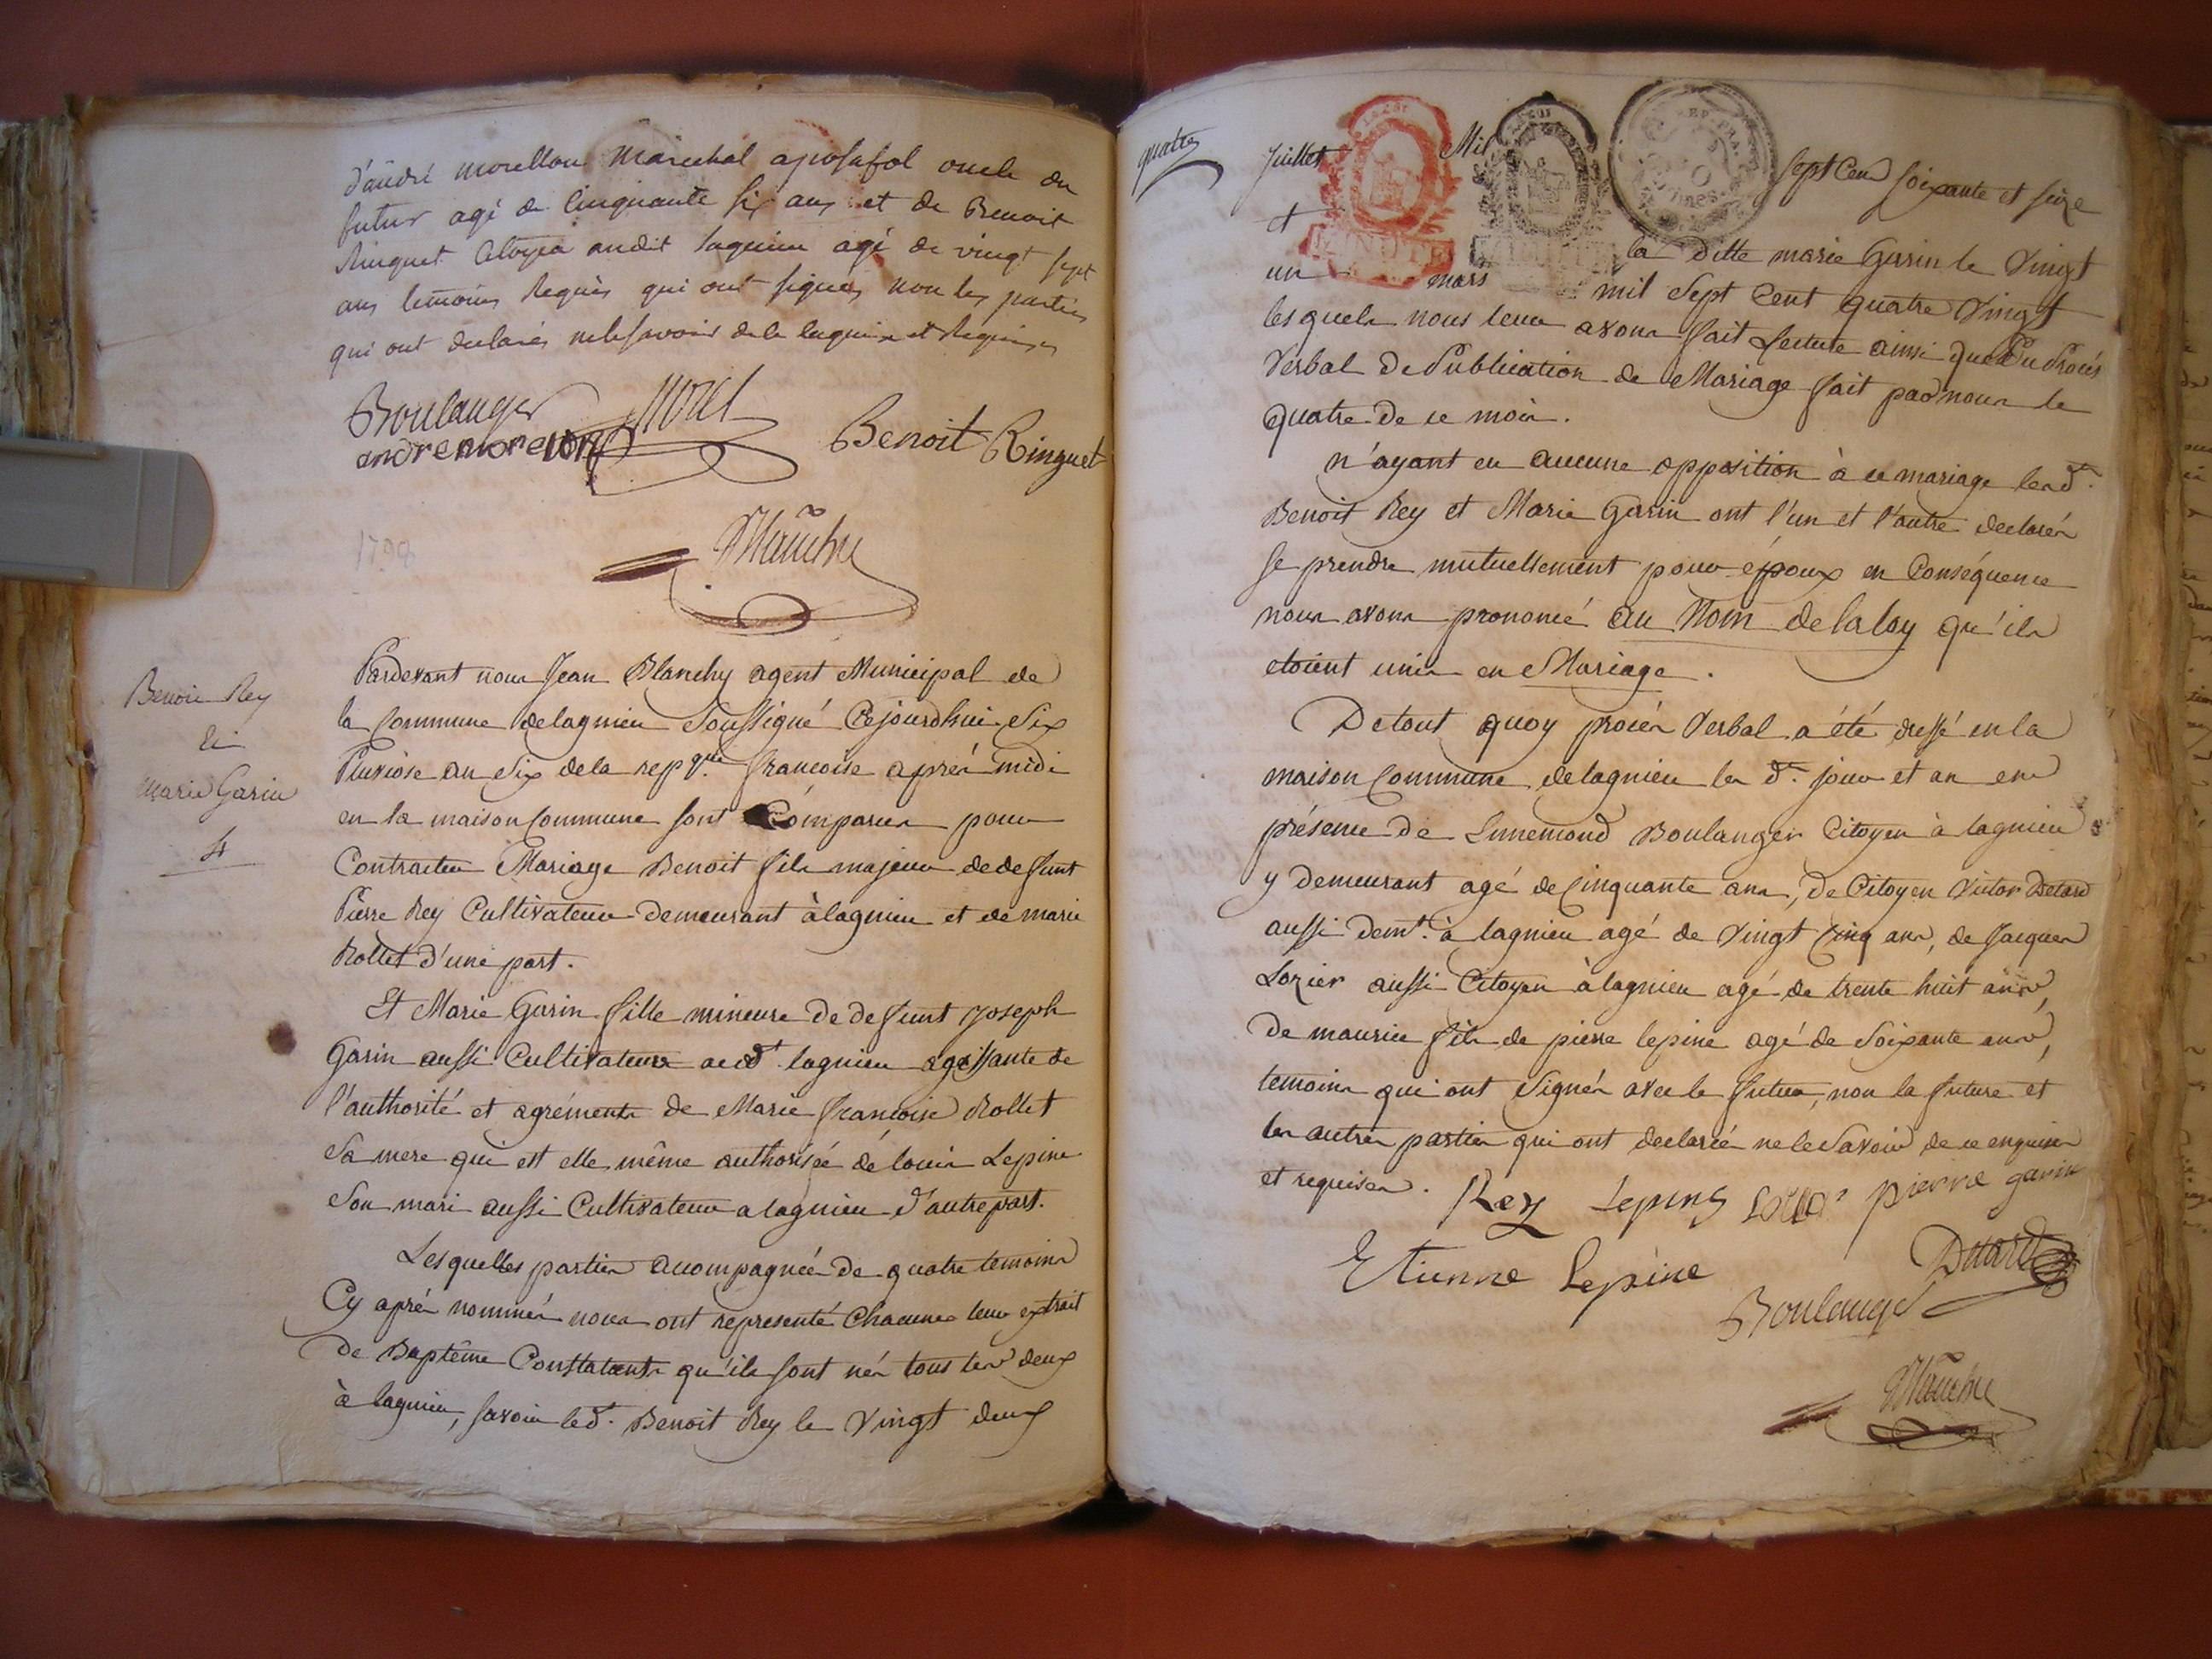 d'andré morellon maréchal a posafol oncle du
futur agé de Cinquante six ans et de Benoit
Ringuet Citoyen audit lagnieu agé de vingt sept
ans temoins Requis qui ont signés non les parties
qui ont declarés ne le savoir de le enquis et Requises
Boulanger Morel
andre morellon Benoit Ringuet
Blanchy
1798
Benoit Rey
Et
Marie Garin
4
Pardevant nous Jean Blanchy agent Municipal de
la Commune de lagnieu Soussigné Cejourdhui Six
Pluviose an Six de la repque. francoise aprés midi
en la maison Commune sont Comparus pour
Contracter Mariage Benoit fils majeur de defunt
Pierre Rey Cultivateur demeurant à lagnieu et de marie
Rollet d'une part.
Et Marie Garin fille mineure de defunt Joseph
Garin aussi Cultivateur aud. lagnieu agissante de
l'authorité et agréments de Marie francoise Rollet
Sa mere qui est elle même authorisée de louis Lepine
Son mari aussi Cultivateur a lagnieu d'autre part.
Lesquelles parties acompagnées de quatre temoins
Cy aprés nommés nous ont representé Chacunes leur extrait
de Baptême Constatants qu'ils sont nés tous les deux
à lagnieu, savoir led. Benoit Rey le vingt deux
quatre
juillet Mil sept Cent soixante et seize
et la ditte marie Garin le Vingt
un mars mil Sept Cent quatre Vingt
lesquels nous leur avons fait Lecture ainsi que Du Procés
Verbal De Publication de Mariage fait par nous le
quatre de ce mois.
n'ayant eu aucune opposition à ce mariage lesd.
Benoit Rey et Marie Garin ont l'un et l'autre declarés
se prendre mutuellement pour époux en Conséquence
nous avons prononcé au Nom de la loy qu'ils
etoient unis en Mariage.
De tout quoy procés Verbal a été dressé en la
maison Commune de lagnieu les d. jour et an en
présence de Ennemond Boulanger Citoyen à lagnieu
y demeurant agé de Cinquante ans, de Citoyen Victor Detard
aussi demt. à lagnieu agé de vingt Cinq ans, de Jacques
Lozier aussi Citoyen à lagnieu agé de trente huit ans,
de maurice fils de pierre lepine agé de Soixante ans,
temoins qui ont Signés avec le futur, non la future et
les autres parties qui ont declarées ne le Savoir de ce enquises
et requises.
Rey Lepine pierre garin
Etienne Lepine
Boulanger
Blanchy